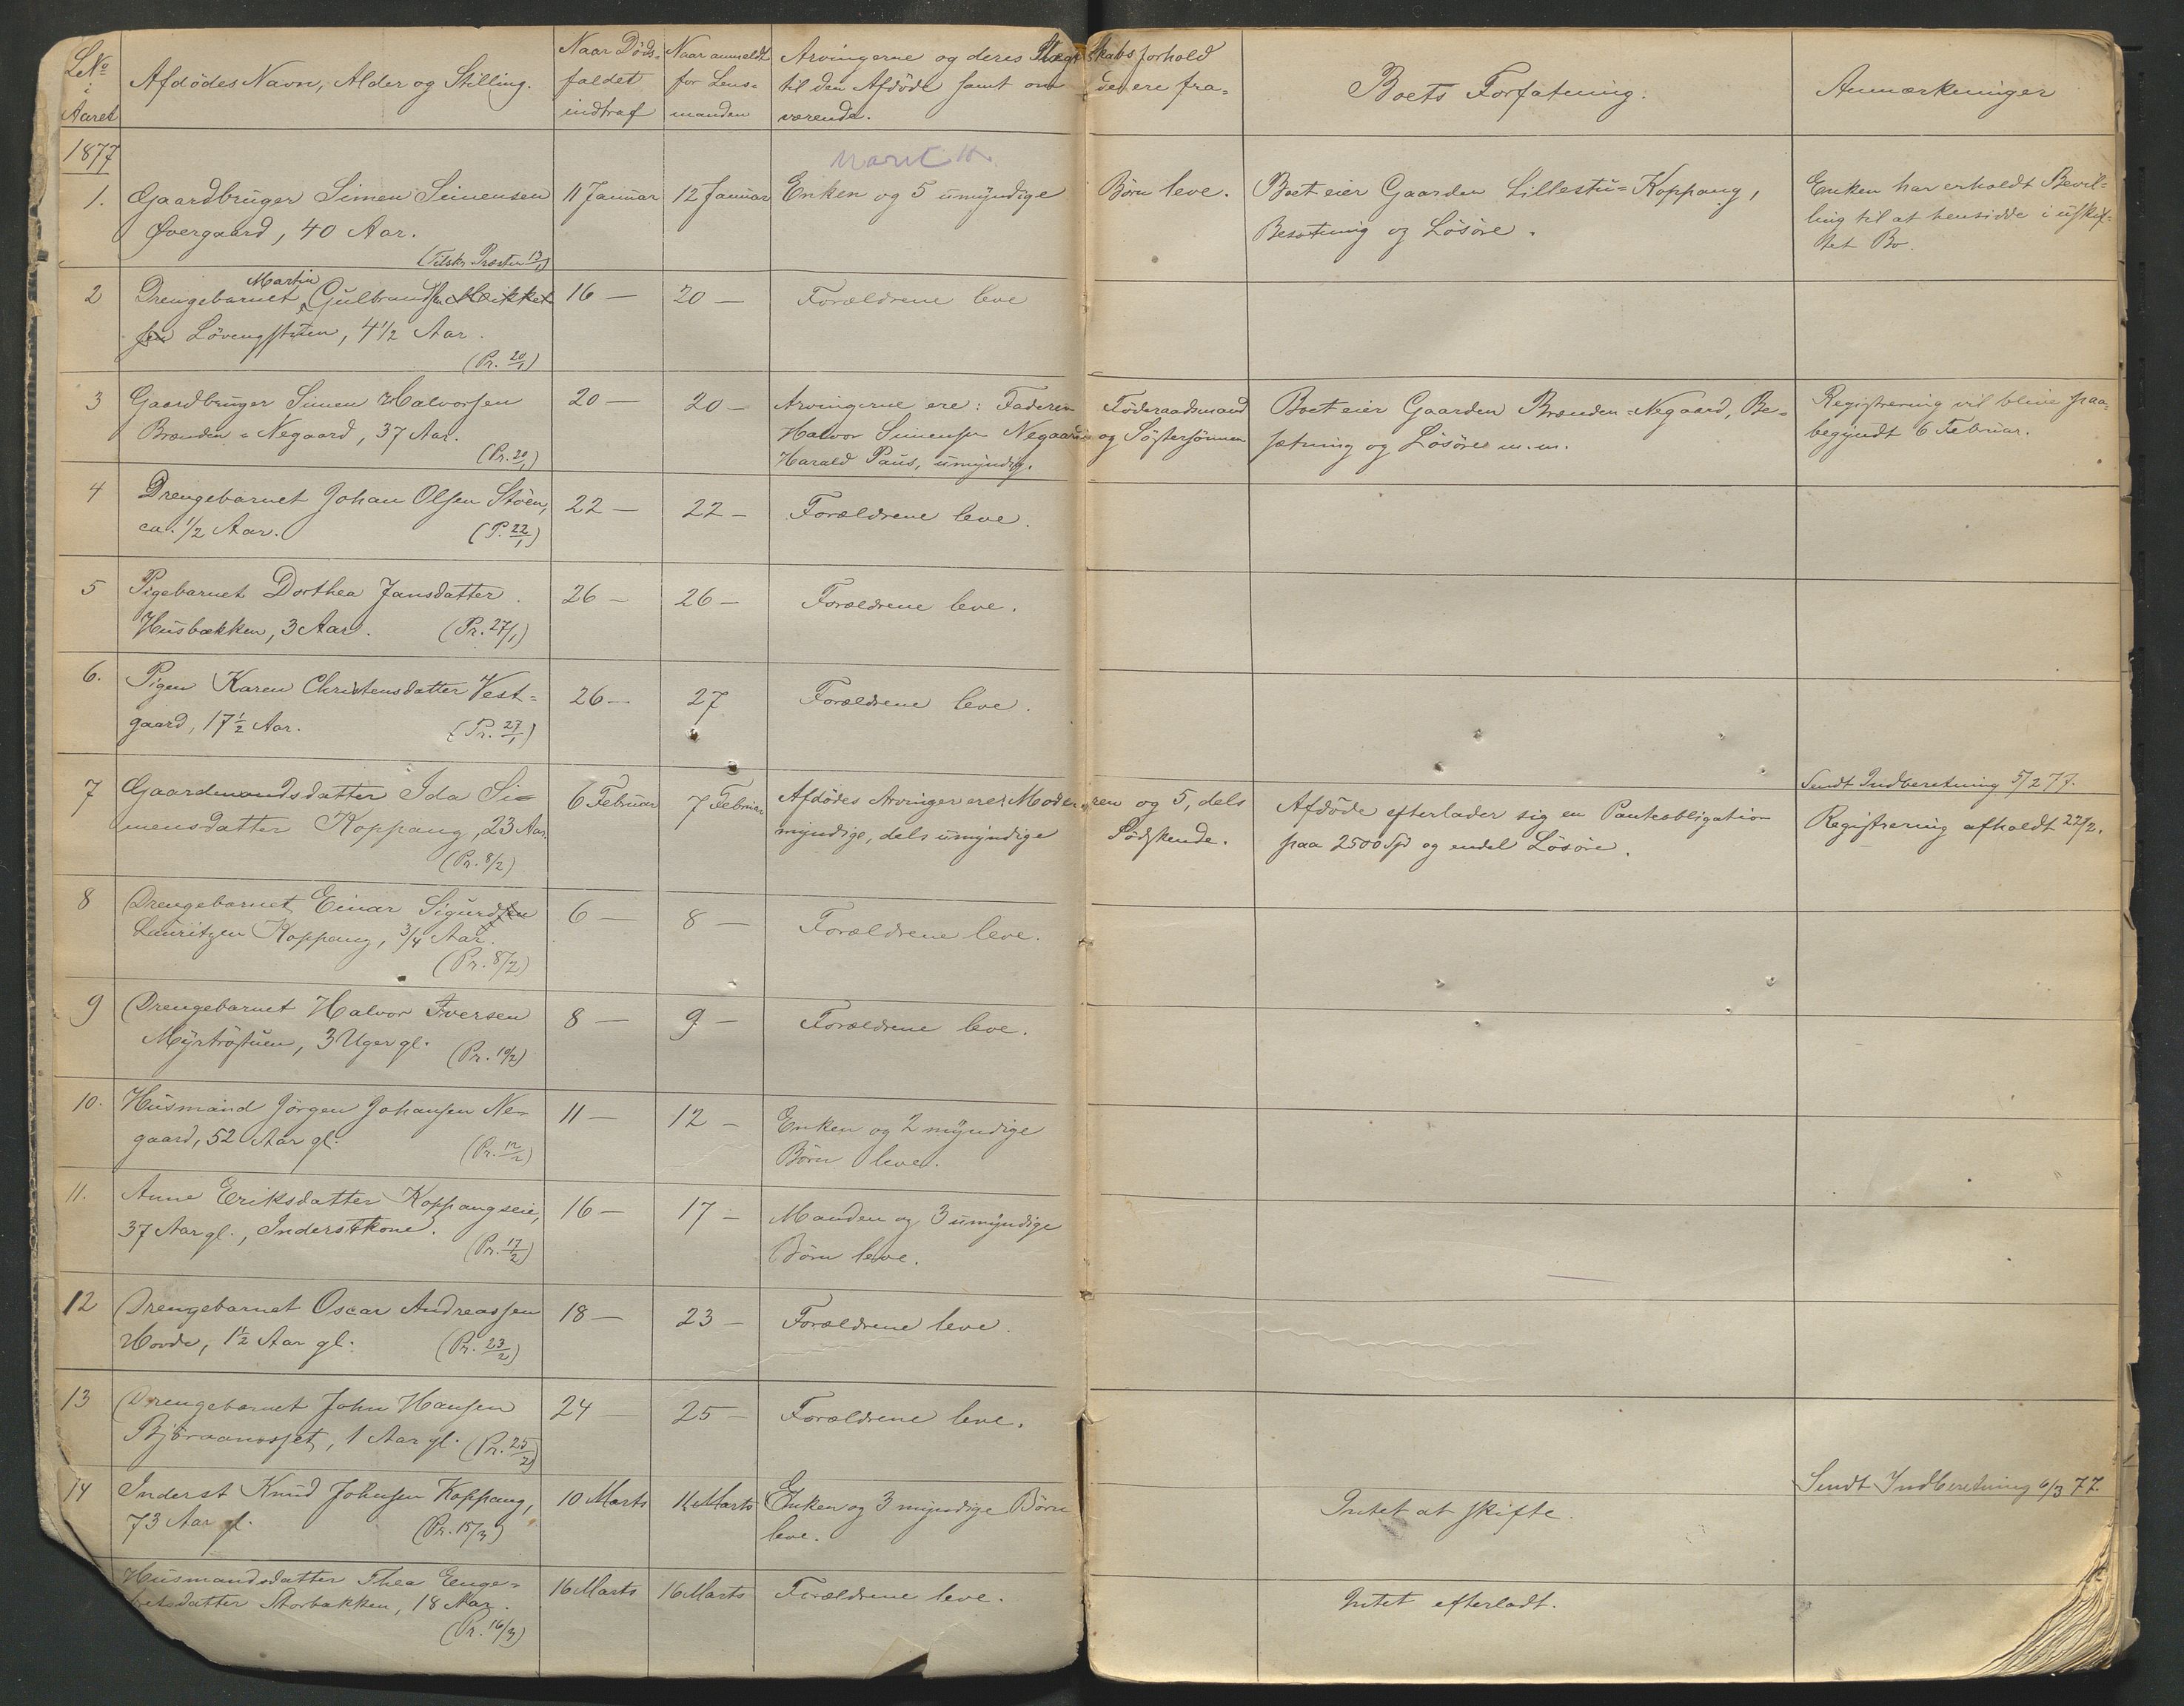 LNo
i
Aaret
Afdødes Navn, Alder og Stilling.
Naar Døds-
faldet
indtraf
Naar anmeldt
for Lens-
manden
Arvingerne og deres Slægtskabsforhold
til den Afdøde samt om de ere fra-
værende.
Boets Forfatning.
Anmærkninger
1877
Marit
1. Gaardbruger Simen Simensen 11 Januar 12 Januar Enken og 5 umyndige Børn leve. Boet eier Gaarden Lillestu-Koppang, Enken har erholdt Bevil-
Øvergaard, 40 Aar. Besætning og Løsøre. ling til at hensidde i uskif-
(Tilskr. Præsten 13/1) tet Bo.
Martin
2 Drengebarnet Gulbrandsen Mikkel 16 — 20 — Forældrene leve
sen Løvengstuen, 4 1/2 Aar.
(Pr. 20/1)
3 Gaardbruger Simen Halvorsen 20 — 20 — Arvingerne ere: Faderen Føderaadsmand Boet eier Gaarden Brænden-Negaard, Be- Registrering vil blive paa-
Brænden-Negaard, 37 Aar. Halvor Simensen Negaard og Søstersønnen sætning og Løsøre m.m. begyndt 6 Februar.
(Pr. 20/1) Harald Paus, umyndig.
4 Drengebarnet Johan Olsen Støen, 22 — 22 — Forældrene leve.
ca. 1/2 Aar. (P. 22/1)
5 Pigebarnet Dorthea Jansdatter 26 — 26 — Forældrene leve.
Husbækken, 3 Aar. (Pr. 27/1)
6. Pigen Karen Christensdatter Vest- 26 — 27 Forældrene leve.
gaard, 17 1/2 Aar. (Pr. 27/1)
Sendt Indberetning 5/2 77.
7 Gaardmandsdatter Ida Si- 6 Februar 7 Februar Afdødes Arvinger ere: Moderen og 5, dels Afdøde efterlader sig en Panteobligation Registrering afholdt 22/2.
mensdatter Koppang, 23 Aar. myndige, dels umyndige Sødskende. paa 2500 Spd og endel Løsøre.
(Pr. 8/2)
8 Drengebarnet Einar Sigurdsen 6 — 8 — Forældrene leve.
Lauritzen Koppang, 3/4 Aar.
(Pr. 8/2)
9 Drengebarnet Halvor Iversen 8 — 9 — Forældrene leve.
Myrtrøstuen, 3 Uger gl. (Pr. 10/2)
10. Husmand Jørgen Johansen Ne- 11 — 12 — Enken og 2 myndige
gaard, 52 Aar gl. (Pr. 12/2) Børn leve.
11. Anne Eriksdatter Koppangseie, 16 — 17 — Manden og 3 umyndige
37 Aar gl., Inderstkone. (Pr. 17/2) Børn leve.
12 Drengebarnet Oscar Andreassen 18 — 23 — Forældrene leve.
Horde, 1 1/2 Aar gl. (Pr. 23/2)
13 Drengebarnet John Hansen 24 25 — Forældrene leve.
Bjøraanosset, 1 Aar gl. (Pr. 25/2)
Sendt Indberetning 6/3 77.
14 Inderst Knud Johnsen Koppang, 10 Marts 11 Marts Enken og 3 myndige Børn Intet at skifte.
73 Aar gl. (Pr. 15/3) leve.
Husmandsdatter Thea Enge- 16 Marts 16 Marts Forældrene leve. Intet efterladt.
bretsdatter Storbakken, 18 Aar.
(Pr. 16/3)